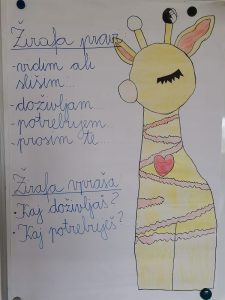 Žirafa pravi
-vidim ali
slišim...
-doživljam...
-potrebujem...
-prosim te...
Žirafa vpraša
•Kaj doživljaš?
•Kaj potrebuješ?